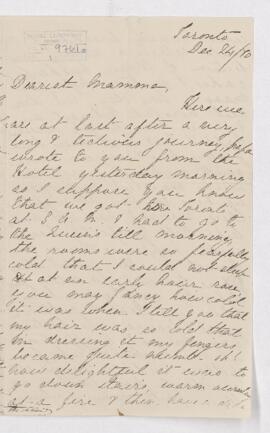 Toronto
Dec 24/90
Dearest Mamma,
Here we
are at last after a very
long & tedious journey, papa
wrote to you from the
Hotel yesterday morning
so I suppose you know
that we got Toronto
at I had to go to
the Queen's till morning
the rooms were so fearfully
cold that I could not sleep
at an early hair
you may fancy how cold
it was when I tell you that
my hair was so cold that
in dressing it my fingers
became quite numb oh!
how delightful it was to
go down stairs, warm ourselves
at a fire & then have